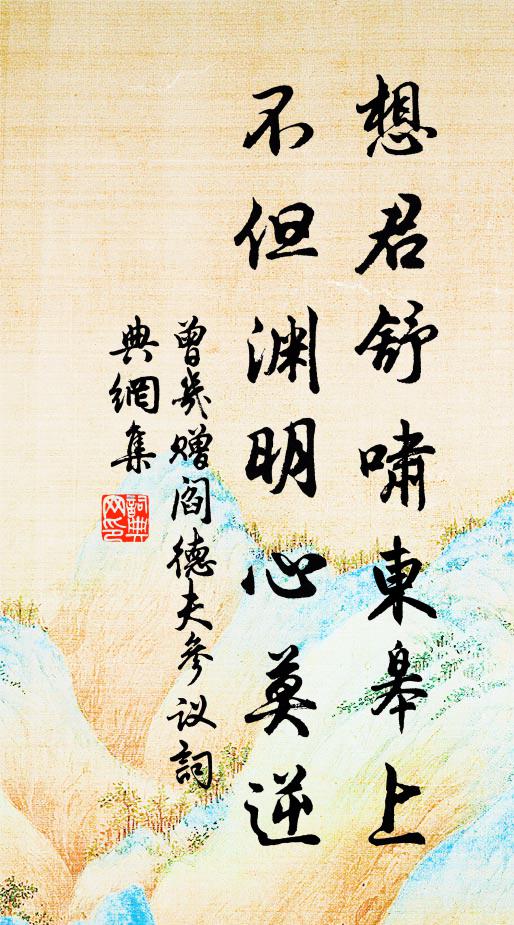 想君舒啸東皋上
不但渊明心莫逆
曾几赠阎德夫参议詞
典網集
詞典网印